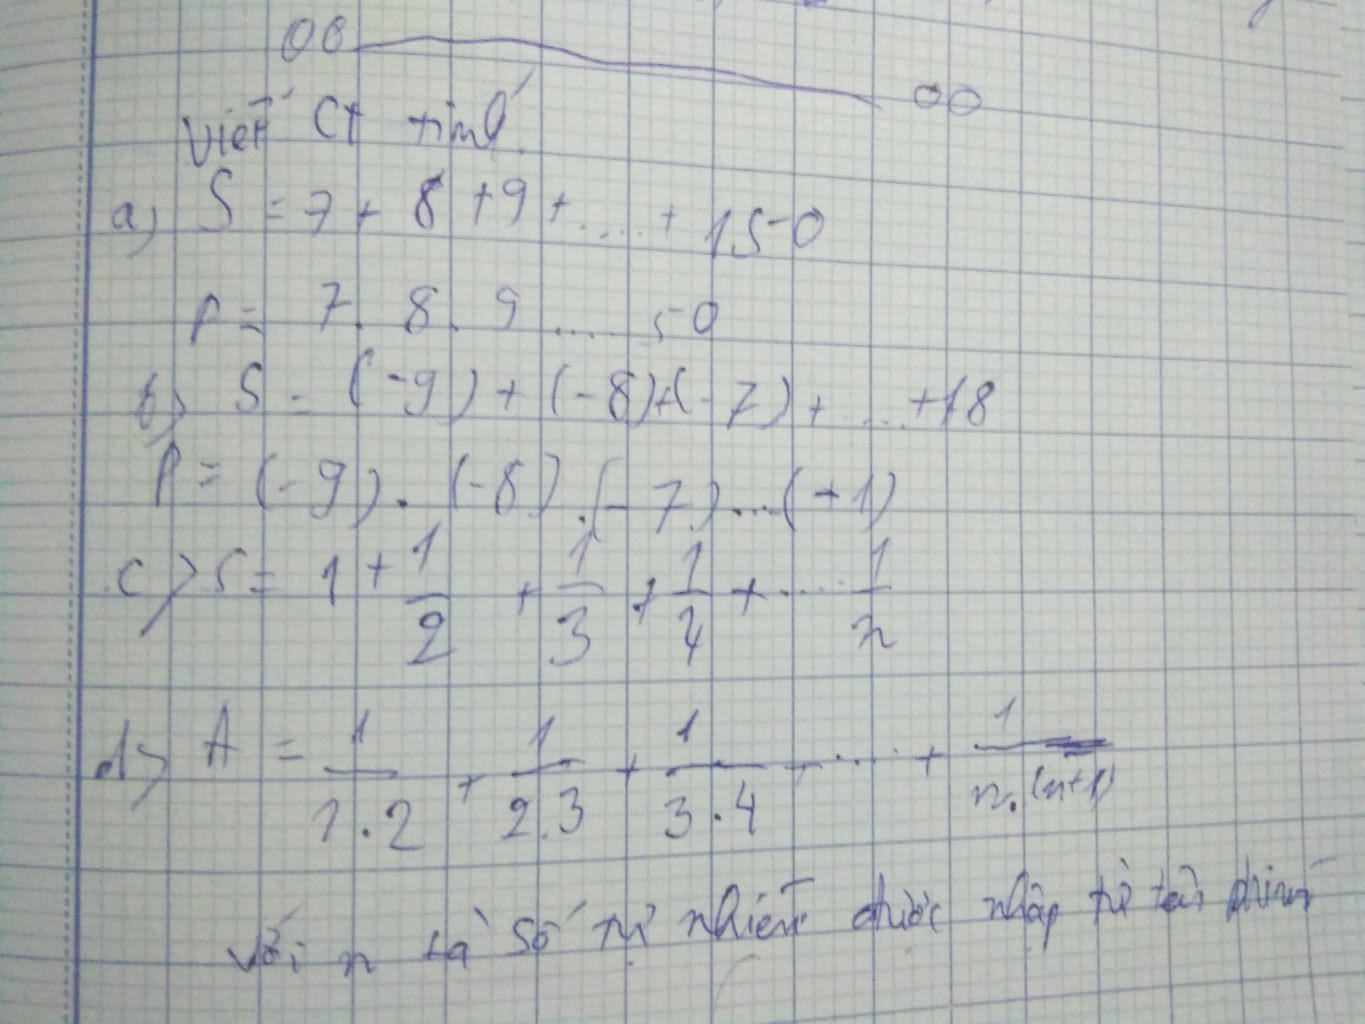 Viết Ct tính
a) S = 7 + 8 + 9 + ..... + 150
P = 7 . 8 . 9 ..... 50
b) S = (-9) + (-8) + (-7) + ... + 18
P = (-9) . (-8) . (-7) ... (+1)
c) S = 1 + 1/2 + 1/3 + 1/4 + ..... 1/n
d) A = 1/1.2 + 1/2.3 + 1/3.4 + ..... + 1/n.(n+1)
Với n là số tự nhiên được nhập từ bàn phím